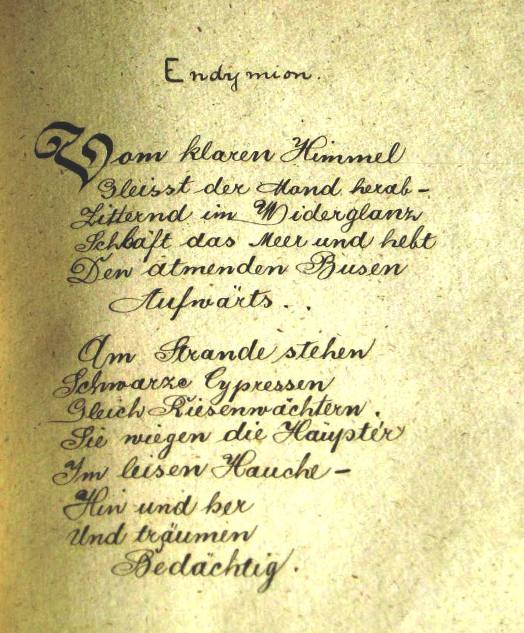 Endymion.
Vom klaren Himmel
Gleisst der Mond herab –
Zitternd im Widerglanz
Schläft das Meer und hebt
Den atmenden Busen
Aufwärts . .
Am Strande stehen
Schwarze Cypressen
Gleich Riesenwächtern .
Sie wiegen die Häupter
Im leisen Hauche –
Hin und her
Und träumen
Bedächtig .